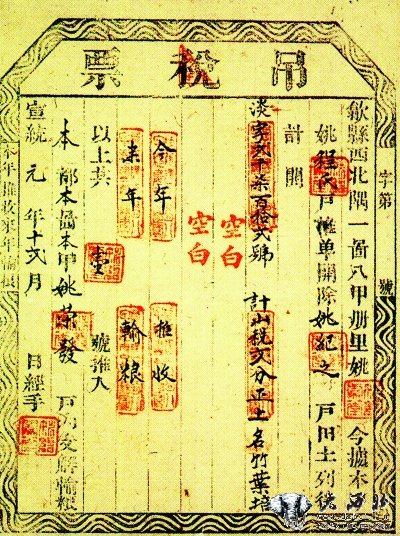 吊税票
字第 號
歙縣西北隅一圖八甲册里姚 今據本
姚程氏戶推单開除姚紀之戶田土列後
計開
淡字列千柒百拾弍號 計山税 分正土名竹葉培
空白
空白
今年 推收
来年 輸粮
以上共 壹 號推入
本都本圖本甲姚荣發戶 輸粮
宣統元年十弍月 日經手
本年推收来年輸粮